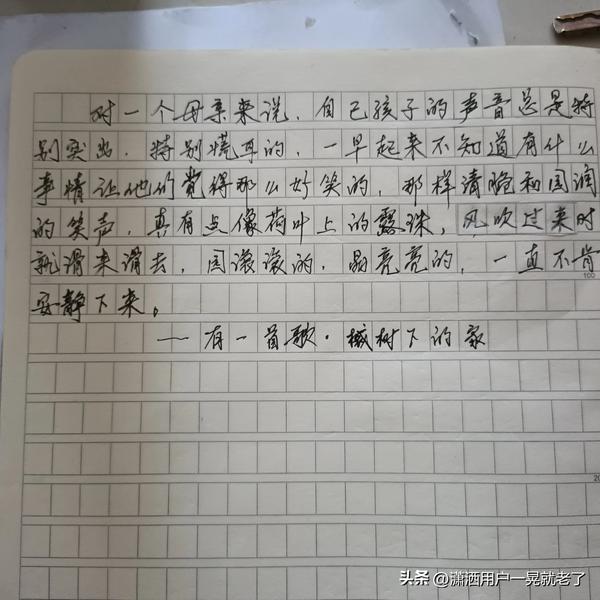 对一个母亲来说，自己孩子的声音总是特
别突出，特别慌耳的，一早起来不知道有什么
事情让他们觉得那么好笑的，那样清脆和圆润
的笑声，真有点像荷叶上的露珠，风吹过来时
就滑来滑去，圆滚滚的，晶亮亮的，一直不肯
100
安静下来。
——有一首歌·槭树下的家
20
头条 @潇洒用户一晃就老了